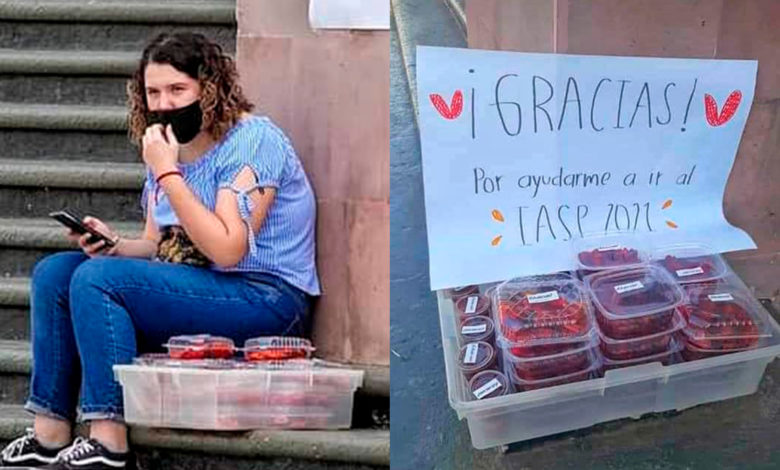 ¡GRACIAS!
Por ayudarme a ir al
IASP 2022